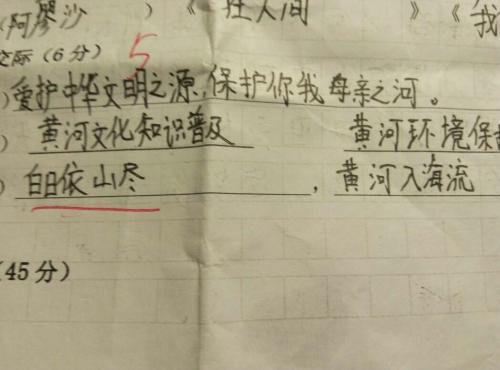 (阿廖沙 ) 《 在人间 》《我
交际(6分) 5
)爱护中华文明之源,保护你我母亲之河。
) 黄河文化知识普及 黄河环境保
) 白日依山尽 , 黄河入海流
(45分)